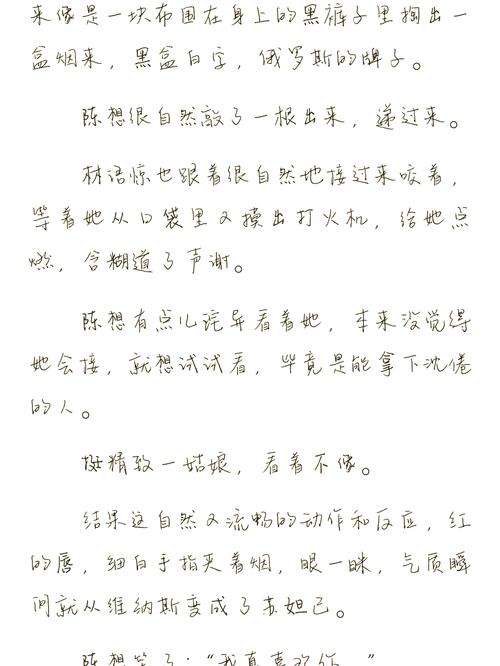 来像是一块布围在身上的黑裤子里掏出一
盒烟来，黑盒白字，俄罗斯的牌子。
陈想很自然敲了一根出来，递过来。
林语惊也跟着很自然地接过来咬着，
等着她从口袋里又摸出打火机，给她点
燃，含糊道了声谢。
陈想有点儿诧异看着她，本来没觉得
她会接，就想试试看，毕竟是能拿下沈倦
的人。
挺精致一姑娘，看着不像。
结果这自然又流畅的动作和反应，红
的唇，细白手指夹着烟，眼一眯，气质瞬
间就从维纳斯变成了苏妲己。
陈想笑了：“我真喜欢你。”